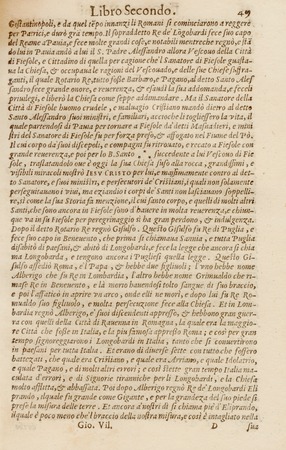 Libro Secondo. 49
Costantinopoli, e da quel tẽpo innanzi li Romani si cominciarono a reggere
per Patrici, e durò gra tempo. Il sopradetto Re de' Lõgobardi fece suo capo
del Reame a Pauia, e fece molte grandi cose, e notabili mentreche regnò, estã
do lui in Pauia andò a lui il S. Padre Alessandro allora Vescouo della Città
di Fiesole, e Cittadino di quella per cagione che'l Sanator di Fiesole guasta-
ua la Chiesa, & occupaua le ragioni del Vescouado, e delle sue Chiese soffra-
ganti, il quale Rotario Re, tutto fosse Barbaro, e Pagano, al detto Santo Ales
sandro fece grande onore, e reuerenza, & esaudì la sua addomanda, e fecela
priuilegi, e liberò la Chiesa come seppe addomandare. Ma il Sanatore della
Città di Fiesole huomo crudele, e maluagio Cristiano mandò dietro al detto
Santo Alessandro suoi ministri, e familiari, accioche li togliessero la vita, il
quale partendosi di Pauia per tornare a Fiesole da' detti Masnadieri, e mini
stri del Sanatore di Fiesole fu per forza preso, & affogato nel Fiume del Pò,
Il cui corpo da' suoi discepoli, e compagni fu ritrouato, e recato a Fiesole con
grande reuerenza, e poi per lo B. Santo *, succedente a lui Vescouo di Fie-
sole, traslatandolo oue è oggi la sua Chiesa presso alla rocca, grandissimi, e
visibili miracoli mostrò IESV CRISTO per lui, e massimamente contro al det-
to Sanatore, e suoi ministri, e persecutori de' Cristiani, i quali non solamente
perseguitauano i viui, ma eziandio i corpi de' Santi non lasciauano soppelli-
re, sì come la sua Storia fa menzione, il cui santo corpo, e quelli di molti altri
Santi, che sono ancora in Fiesole sono d'hauere in molta reuerenza, e chiun-
que va in su Fiesole per peregrinaggio vi ha gran perdono, & indulgenza.
Dopo il detto Rotario Re regnò Gisulfo. Questo Gisulfo fu Re di Puglia, e
fece suo capo in Beneuento, che prima si chiamaua Samia, e tutta Puglia
disabitò di paesani, & abitò di Longobardi, e fece la legge che ancora si chia
ma Longobarda, e tengono ancora i Pugliesi quella legge. Questo Gi-
sulfo assediò Roma, e'l Papa, & hebbe due figliuoli; l'vno hebbe nome
Alberigo, che fu Re in Lombardia, l'altro hebbe nome Grimoaldo che ri-
mase Re in Beneuento, e là morto hauendosi tolto sangue di suo braccio,
e poi l'affaticò in aprire vn arco, onde elli ne morì, e dopo lui fu Re Ro-
mualdo suo figliuolo, e molta persecuzione fece alla Chiesa. Et in Lom-
bardia regnò Alberigo, e' suoi discendenti appresso, & hebbono gran guer-
ra con quelli della Città di Rauenna in Romagna, la quale era la maggio-
re Città che fosse in Italia, e la più famosa appresso Roma; e così per gran
tempo signoreggiarono i Longobardi in Italia, tanto che si conuertirono
in paesani per tutta Italia. Et erano di diuerse sette con tutto che fossero
battezati, che quale era Cristiano, e quale era Arriano, e quale Idolatrio,
e quale Pagano, e di molti altri errori; e così stette gran tempo Italia ma-
culata d'errori, e di Signorie tiranniche per li Longobardi, e la Chiesa
molto afflitta, & abbassata. Poi dopo Alberigo regnò Re de' Longobardi Eli
prando, il quale fu grande come Gigante, e per la grandezza del suo piede si
prese la misura delle terre. Et ancora a' nostri dì si chiama piè d'Eliprando,
il quale è poco meno che'l braccio della nostra misura, e così è intagliato nella
Gio. Vil. D sua